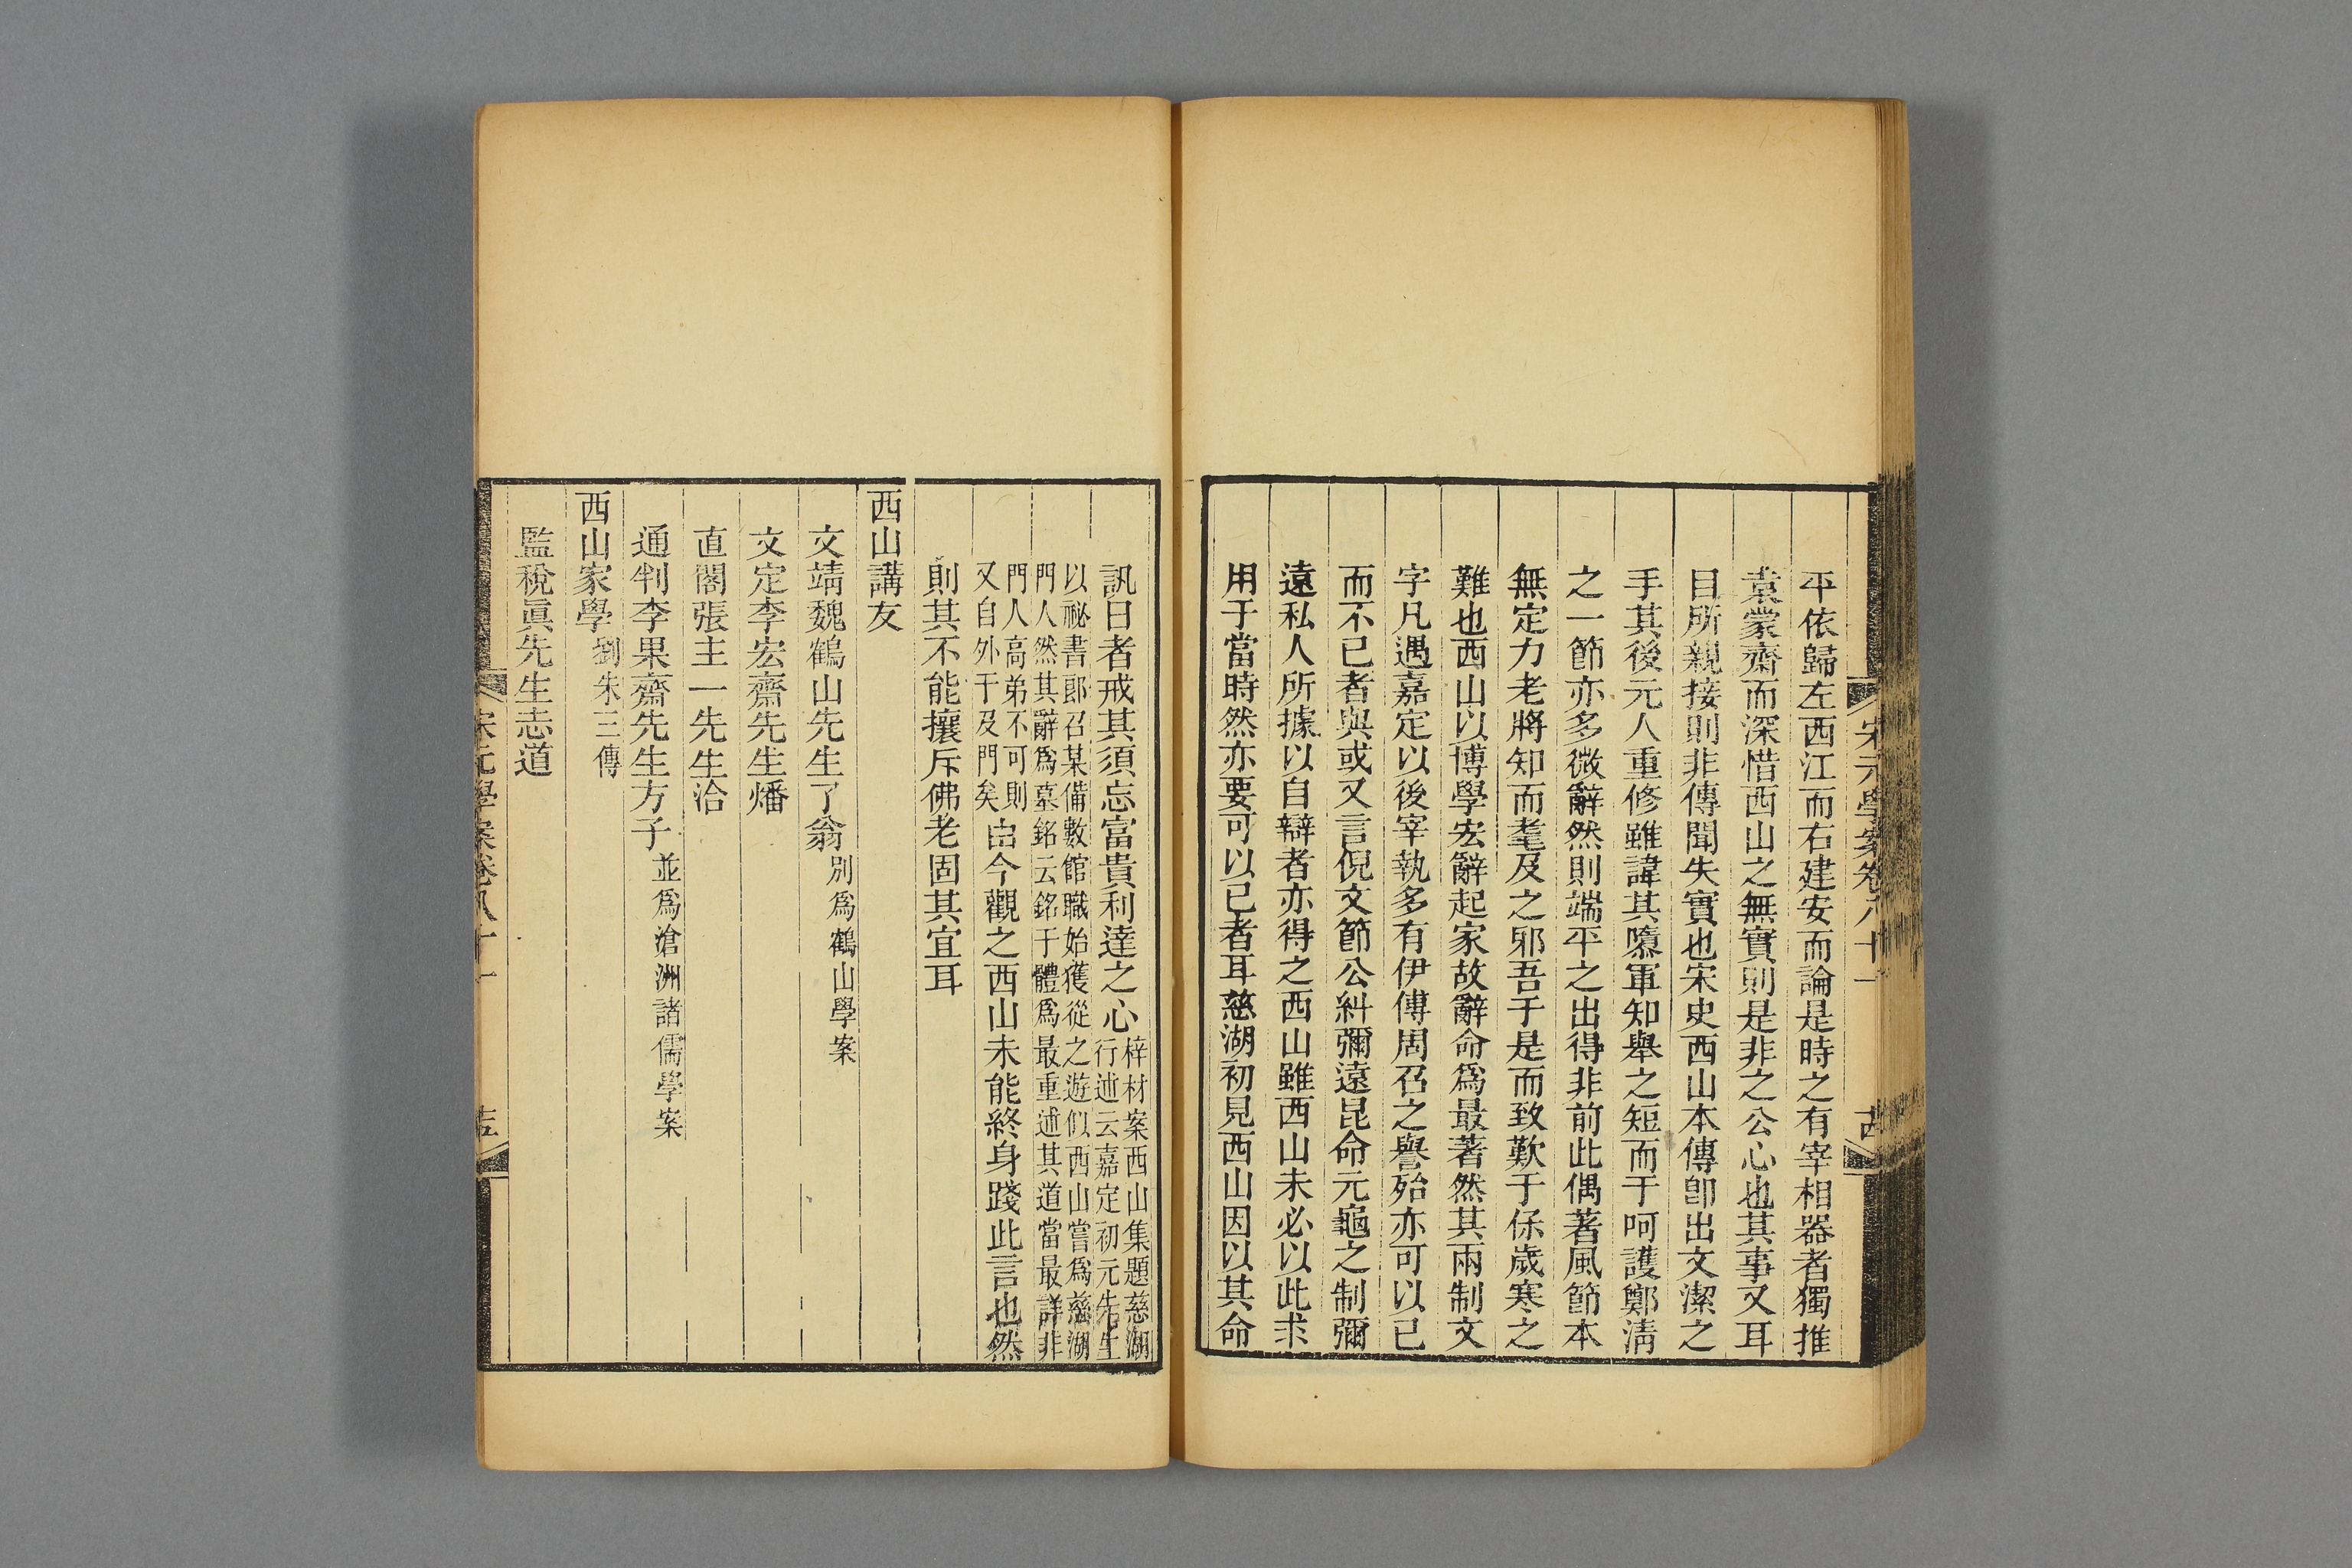 平依歸左西江而右建安而論是時之有宰相器者獨推
袁蒙齋而深惜西山之無實則是非之公心也其事又耳
目所親接則非傳聞失實也宋史西山本傳卽出文潔之
手其後元人重修雖諱其隳軍知舉之短而于呵護鄭淸
之一節亦多微辭然則端平之出得非前此偶著風節本
無定力老將知而耄及之邪吾于是而致歎于保歲寒之
難也西山以博學宏辭起家故辭命爲最著然其兩制文
字凡遇嘉定以後宰執多有伊傅周召之譽殆亦可以已
而不已者與或又言倪文節公糾彌遠昆命元龜之制彌
遠私人所據以自辯者亦得之西山雖西山未必以此求
用于當時然亦要可以已者耳慈湖初見西山因以其命
宋元學案卷八十一
訊日者戒其須忘富貴利達之心
梓材案西山集題慈湖
行述云嘉定初元先生
以祕書郎召某備數館職始獲從之遊似西山嘗爲慈湖
門人然其辭爲墓銘云銘于體爲最重述其道當最詳非
門人高弟不可則
又自外于及門矣
由今觀之西山未能終身踐此言也然
則其不能攘斥佛老固其宜耳
西山講友
文靖魏鶴山先生了翁別爲鶴山學案
文定李宏齋先生燔
直閣張主一先生洽
通判李果齋先生方子並爲滄洲諸儒學案
西山家學劉朱三傳
監稅眞先生志道
宋元學案卷八十一